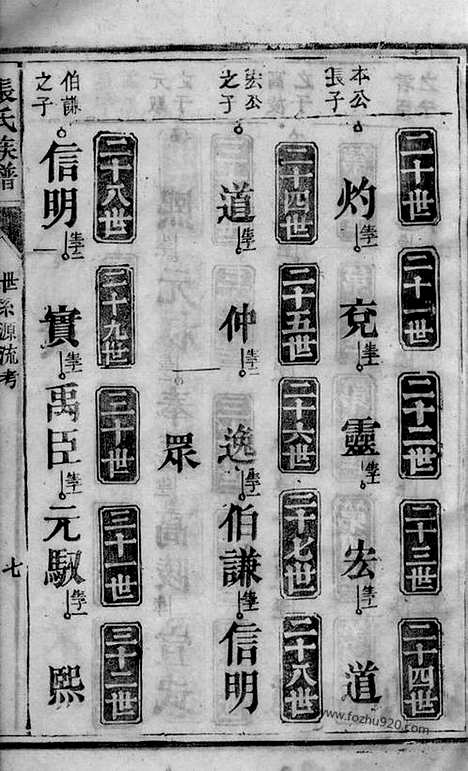 二十世
二十一世
二十二世
二十三世
二十四世
本公
長子
灼 生一
兗 生一
靈 生一
宏 生一
道
二十四世
二十五世
二十六世
二十七世
二十八世
宏公
之子
道 生一
仲 生一
逸 生一
伯謙 生一
信明
眾
二十八世
二十九世
三十世
三十一世
三十二世
伯謙
之子
信明 生一
實 生一
禹臣 生一
元馭 生一
熙
張氏族譜
世系源流考
七
www.fozhu920.com